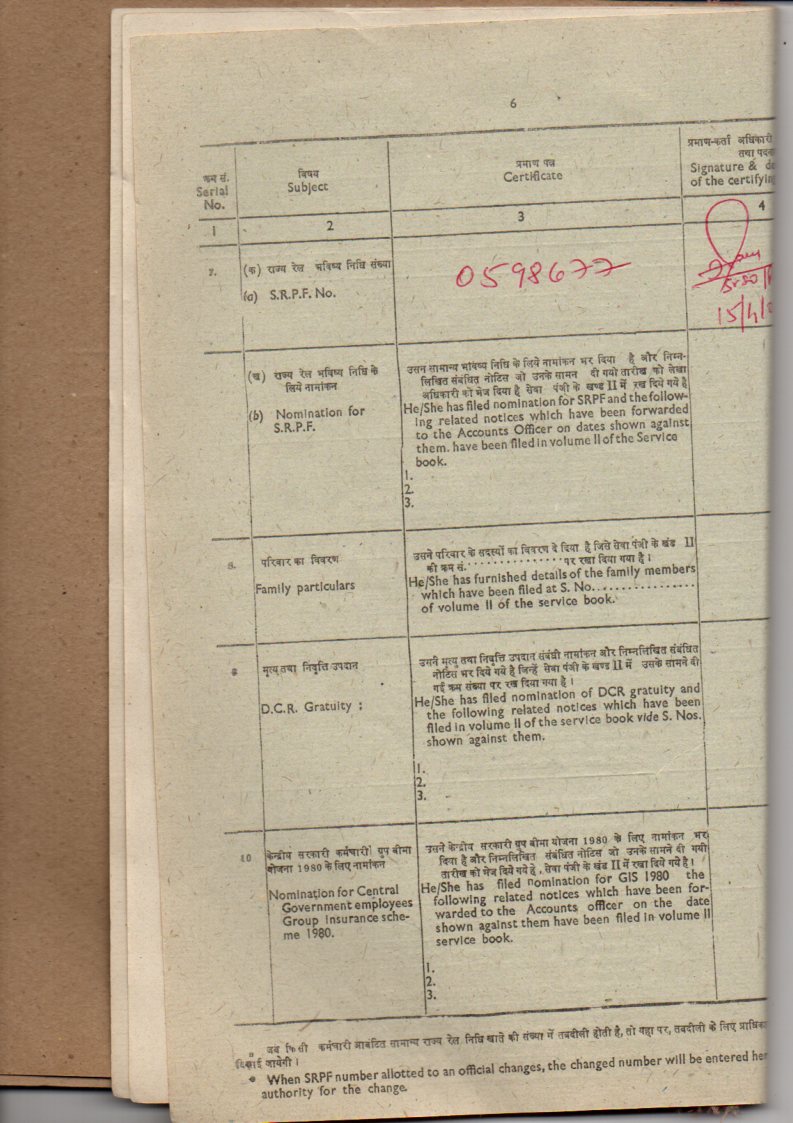 6
क्रम सं.
Serial
No.
विषय
Subject
प्रमाण पत्र
Certificate
प्रमाण-कर्ता अधिकारी
तथा
Signature &
of the certifying
1
2
3
4
7.
(क) राज्य रेल भविष्य निधि संख्या
(a) S.R.P.F. No.
0598677
15/4/
(ख) राज्य रेल भविष्य निधि के
लिये नामांकन
(b) Nomination for
S.R.P.F.
उसन सामान्य भविष्य निधि के लिये नामांकन भर दिया है और निम्न-
लिखित संबंधित नोटिस जो उनके सामन दी गयी तारीख को लेखा
अधिकारी को भेज दिया है सेवा पंजी के खण्ड II में रख दिये गये है
He/She has filed nomination for SRPF and the follow-
ing related notices which have been forwarded
to the Accounts Officer on dates shown against
them. have been filed in volume II of the Service
book.
1.
2.
3.
8.
परिवार का विवरण
Family particulars
उसने परिवार के सदस्यों का विवरण दे दिया है जिसे सेवा पंजी के खंड II
की क्रम सं. . . . . . . . . . . . . . . . पर रखा दिया गया है ।
He/She has furnished details of the family members
which have been filed at S. No. . . . . . . . . . . . . . . .
of volume II of the service book.
9
मृत्यु तथा निवृत्ति उपदान
D.C.R. Gratuity :
उसने मृत्यु तथा निवृत्ति उपदान संबंधी नामांकन और निम्नलिखित संबंधित
नोटिस भर दिये गये है जिन्हें सेवा पंजी के खण्ड II में उसके सामने दी
गई क्रम संख्या पर रख दिया गया है ।
He/She has filed nomination of DCR gratuity and
the following related notices which have been
filed in volume II of the service book vide S. Nos.
shown against them.
1.
2.
3.
10
केन्द्रीय सरकारी कर्मचारी ग्रुप बीमा
योजना 1980 के लिए नामांकन
Nomination for Central
Government employees
Group insurance sche-
me 1980.
उसने केन्द्रीय सरकारी ग्रुप बीमा योजना 1980 के लिए नामांकन भर
दिया है और निम्नलिखित संबंधित नोटिस जो उनके सामने दी गयी
तारीख को भेज दिये गये है , सेवा पंजी के खंड II में रखा दिये गये है ।
He/She has filed nomination for GIS 1980 the
following related notices which have been for-
warded to the Accounts officer on the date
shown against them have been filed in volume II
service book.
1.
2.
3.
जब किसी कर्मचारी आबंटित सामान्य राज्य रेल निधि खाते की संख्या में तबदीली होती है, तो यहा पर, तबदीली के लिए
दिखाई जायेगी ।
* When SRPF number allotted to an official changes, the changed number will be entered
authority for the change.